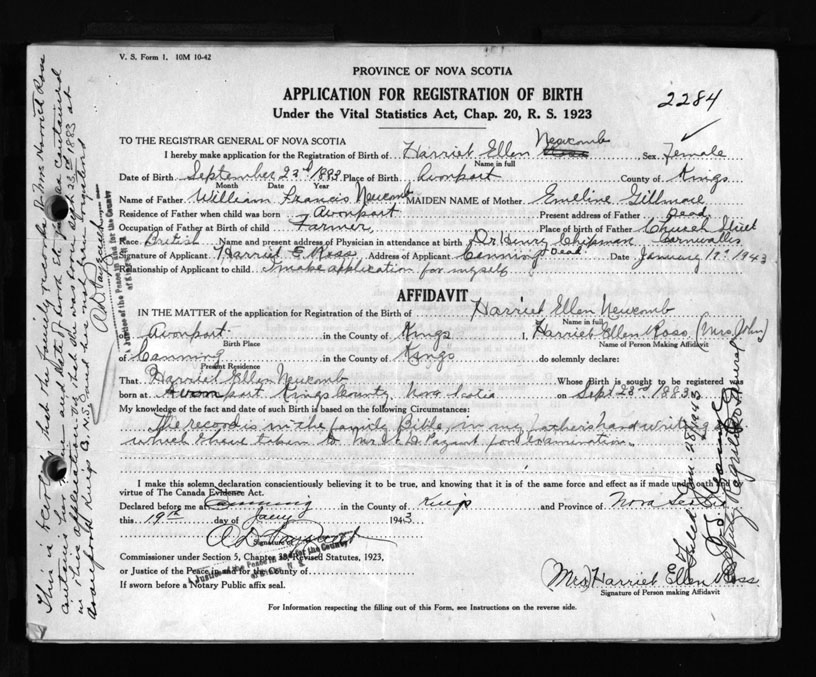 V. S. Form 1. 10M 10-42
PROVINCE OF NOVA SCOTIA
APPLICATION FOR REGISTRATION OF BIRTH
Under the Vital Statistics Act, Chap. 20, R. S. 1923
2284
TO THE REGISTRAR GENERAL OF NOVA SCOTIA
I hereby make application for the Registration of Birth of Harriet Ellen Newcomb Ross Sex Female
Name in full
Date of Birth September 23rd 1883 Place of Birth Avonport County of Kings
Month Date Year
Name of Father William Francis Newcomb MAIDEN NAME of Mother Emeline Gillmore
Residence of Father when child was born Avonport Present address of Father Dead
Occupation of Father at Birth of child Farmer Place of birth of Father Church Street Cornwallis
Race British Name and present address of Physician in attendance at birth Dr. Henry Chipman Dead
Signature of Applicant Harriet E. Ross Address of Applicant Canning Date January 19th 1943
Relationship of Applicant to child I make application for myself
AFFIDAVIT
IN THE MATTER of the application for Registration of the Birth of Harriet Ellen Newcomb
Name in full
of Avonport in the County of Kings I, Harriet Ellen Ross (Mrs. John)
Birth Place Name of Person Making Affidavit
of Canning in the County of Kings do solemnly declare:
Present Residence
That Harriet Ellen Newcomb Whose Birth is sought to be registered was
born at Avonport Kings County Nova Scotia on Sept 23rd 1883
My knowledge of the fact and date of such Birth is based on the following Circumstances:
The record is in the family Bible, in my fathers handwriting
which I have taken to Mr. A. D. Payzant for examination.
I make this solemn declaration conscientiously believing it to be true, and knowing that it is of the same force and effect as if made under oath and by
virtue of The Canada Evidence Act.
Declared before me at Canning in the County of Kings and Province of Nova Scotia
this 19th day of Jany 1943
A D Payzant
Signature of
Commissioner under Section 5, Chapter 38, Revised Statutes, 1923,
or Justice of the Peace in and for the County of
Justice of the Peace in and for the County
of Kings, N. S.
If sworn before a Notary Public affix seal.
(Mrs) Harriet Ellen Ross
Signature of Person making Affidavit
For Information respecting the filling out of this Form, see Instructions on the reverse side.
This is to certify that the family record of Mrs Harriet Ross
in this application, that she was born Sept 23rd 1883 at
A D Payzant
Justice of the Peace in and for the County
of Kings, N. S.
Filed Jan 28 1943